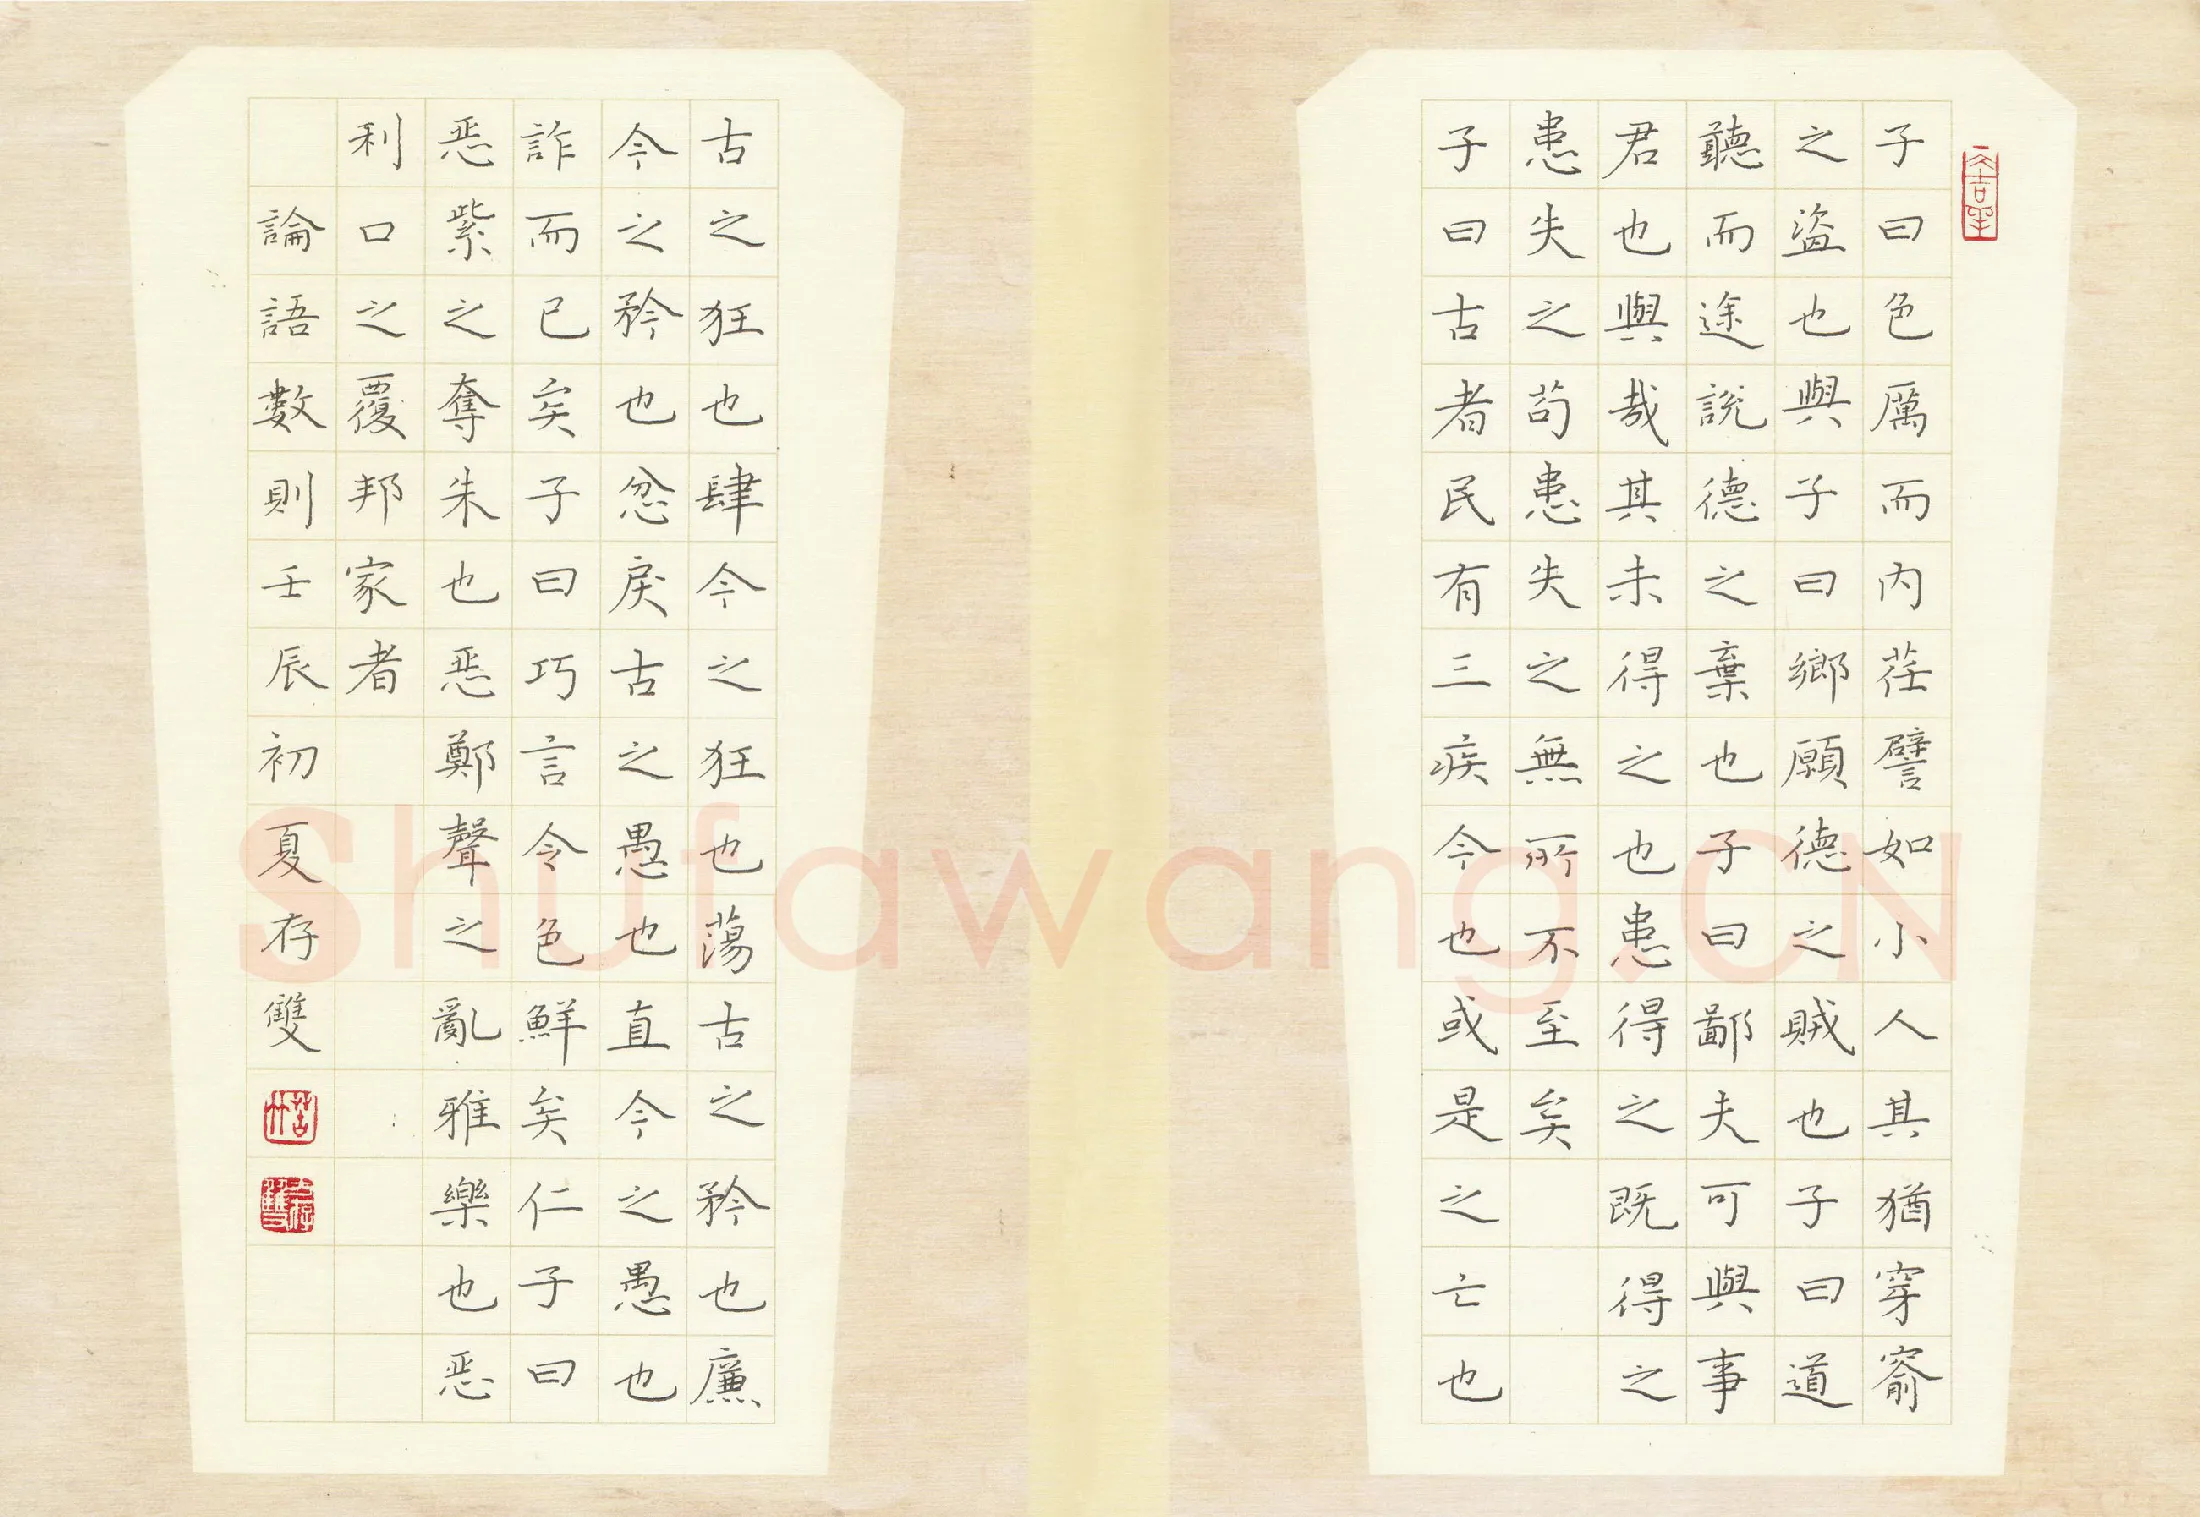 子曰色厲而內荏譬如小人其猶穿窬
之盜也與子曰鄉愿德之賊也子曰道
聽而途說德之棄也子曰鄙夫可與事
君也與哉其未得之也患得之既得之
患失之苟患失之無所不至矣
子曰古者民有三疾今也或是之亡也
古之狂也肆今之狂也蕩古之矜也廉
今之矜也忿戾古之愚也直今之愚也
詐而已矣子曰巧言令色鮮矣仁子曰
惡紫之奪朱也惡鄭聲之亂雅樂也惡
利口之覆邦家者
論語數則壬辰初夏存雙
Shufawang.CN